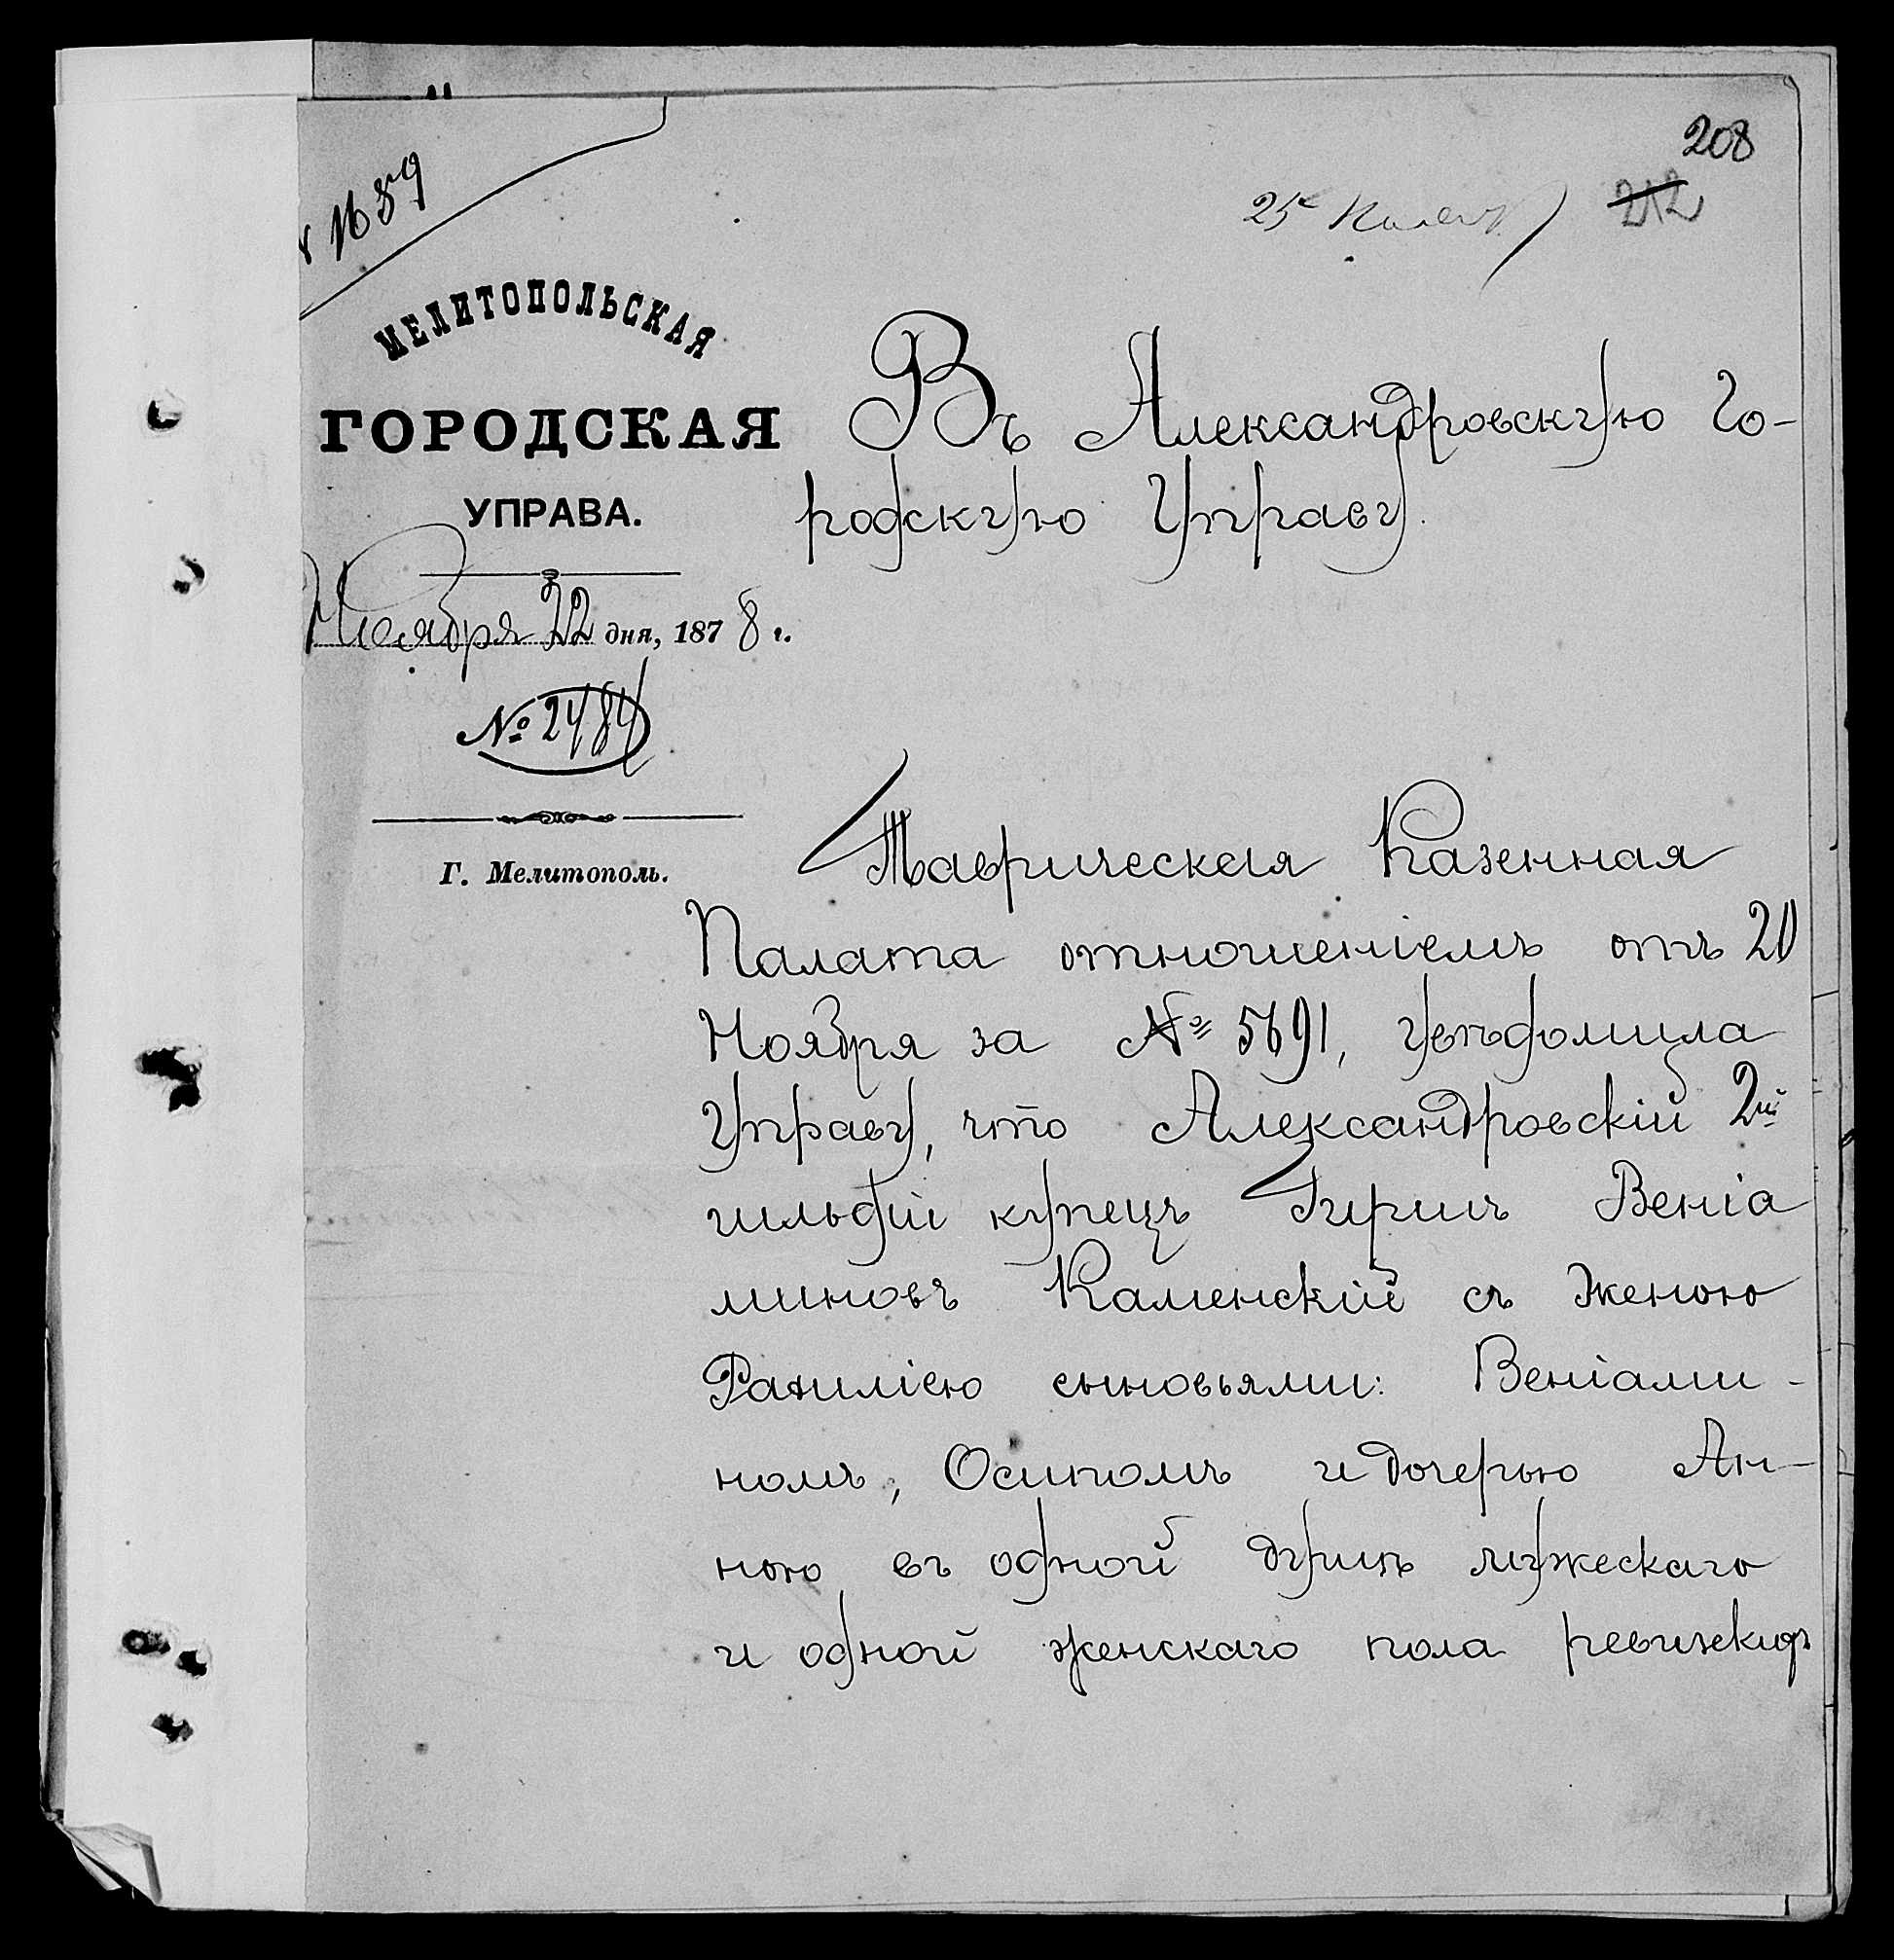 208
212
25е
1659
МЕЛИТОПОЛЬСКАЯ
ГОРОДСКАЯ
УПРАВА.
Ноября 22 дня, 1878 г.
№ 2484
Г. Мелитополь.
Въ Александровскую Го-
родскую Управу.
Таврическая Казенная
Палата отношеніемъ отъ 20
Ноября за № 5691, увѣдомила
Управу, что Александровскій 2й
гильдіи купецъ Гиршъ Веніа
миновъ Каменскій съ женою
сыновьями: Веніами-
номъ, Осипомъ и дочерью Ан-
ною въ одной душѣ мужескаго
и одной женскаго пола ревизскихъ